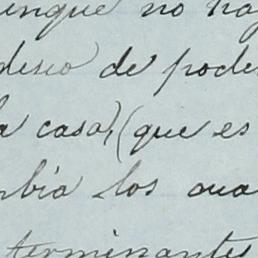 unque no hay
deseo de poder
a casa, (que es
bia los cua
terminantes